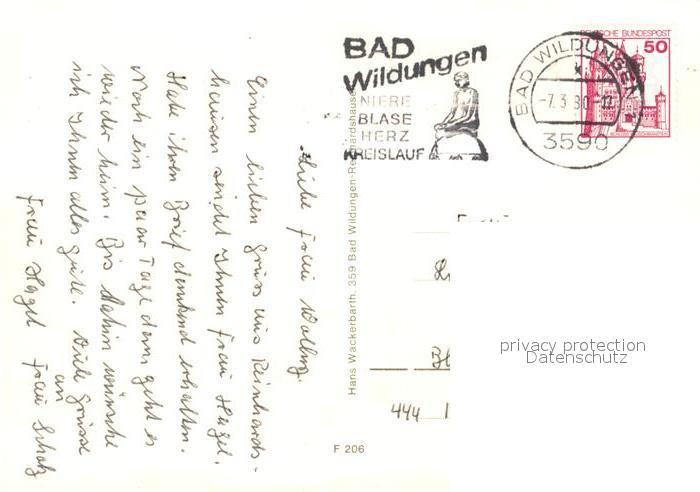 Liebe Frau
Einen lieben Gruss aus Reinhards-
hausen sendet Ihnen Frau Hagel.
Habe ihren Brief dankend erhalten.
Noch ein paar Tage dann geht es
wieder heim. Bis dahin wünsche
ich Ihnen alles gute. Viele Grüsse
an
Frau Hagel Frau Scholz
Hans Wackerbarth, 359 Bad Wildungen-Reinhardshausen
F 206
BAD
Wildungen
NIERE
BLASE
HERZ
KREISLAUF
BAD WILDUNGEN
-7.3.80-
3590
DEUTSCHE BUNDESPOST
50
444
privacy protection
Datenschutz